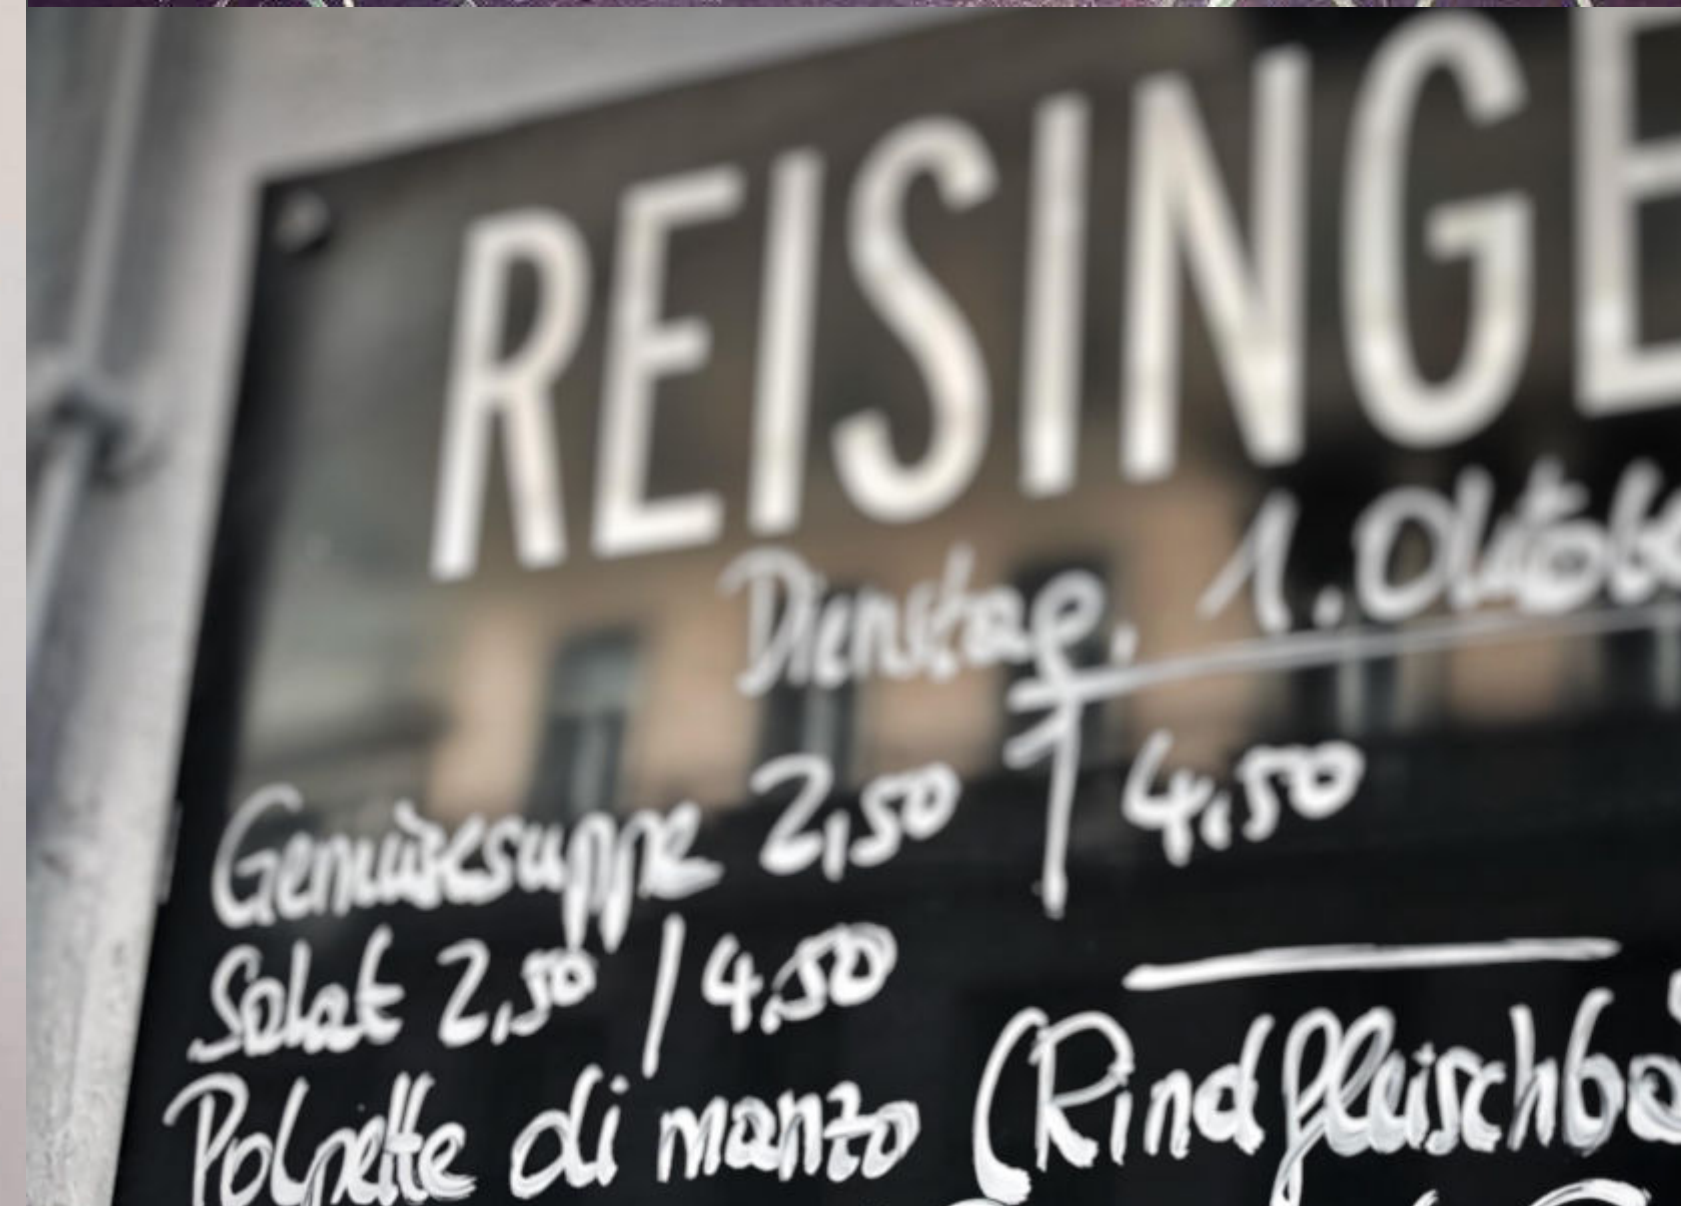 REISINGE
Dienstag, 1. Oktobe
Gemüsesuppe 2,50 / 4,50
Salat 2,50 / 4,50
Polpette di manzo (Rindfleischbä